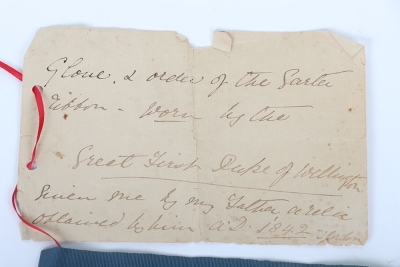 Glove & order of the Garter
ribbon - worn by the
Great First Duke of Wellington
Given me by my Father a relic
obtained by him A.D. 1842